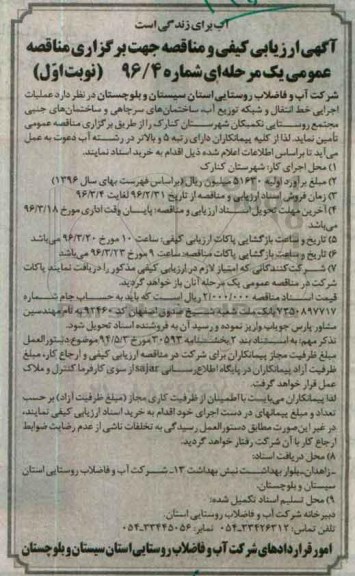 آب برای زندگی است
آگهی ارزیابی کیفی و مناقصه جهت برگزاری مناقصه
عمومی یک مرحله‌ای شماره ۹۶/۴ (نوبت اول)
شرکت آب و فاضلاب روستایی استان سیستان و بلوچستان در نظر دارد عملیات
اجرایی خط انتقال و شبکه توزیع آب، ساختمان‌های سرچاهی و ساختمان‌های جنبی
مجتمع روستایی تکمیکان شهرستان کنارک را از طریق برگزاری مناقصه عمومی
تأمین نماید. لذا از کلیه پیمانکاران دارای رتبه ۵ و بالاتر در رشته آب دعوت به عمل
می‌آید تا بر اساس اطلاعات اعلام شده ذیل اقدام به خرید اسناد نمایند.
۱) محل اجرای کار: شهرستان کنارک
۲) مبلغ برآورد اولیه ۵۱۶۳۰ میلیون ریال (براساس فهرست بهای سال ۱۳۹۶)
۳) زمان فروش اسناد ارزیابی و مناقصه از تاریخ ۹۶/۲/۳۱ لغایت ۹۶/۳/۴
۴) آخرین مهلت تحویل اسناد ارزیابی و مناقصه: پایان وقت اداری مورخ ۹۶/۳/۱۸
می‌باشد
۵) تاریخ و ساعت بازگشایی پاکات ارزیابی کیفی: ساعت ۱۰ مورخ ۹۶/۳/۲۰ می‌باشد
۶) تاریخ و ساعت بازگشایی پاکات مناقصه: ساعت ۹ مورخ ۹۶/۳/۲۳ می‌باشد
۷) شرکت‌کنندگانی که امتیاز لازم در ارزیابی کیفی مذکور را دریافت نمایند پاکات
شرکت در مناقصه عمومی یک مرحله آنان باز خواهد گردید.
قیمت اسناد مناقصه ۲/۰۰۰/۰۰۰ ریال است که باید به حساب جام شماره
۷۳۵۰۸۹۷۷۱۷ بانک ملت شعبه شیخ صدوق اصفهان کد ۹۲۴۶۰ به نام مهندسین
مشاور پارس جویاب واریز نموده و رسید آن به فروشنده اسناد تحویل شود.
تذکر مهم: به استناد بند ۲ بخشنامه ۳۰۵۹۳ مورخ ۹۴/۵/۳ موضوع دستورالعمل
مبلغ ظرفیت مجاز پیمانکاران برای شرکت در مناقصه ارزیابی کیفی و ارجاع کار، مبلغ
ظرفیت آزاد پیمانکاران در پایگاه اطلاع‌رسانی sajar از سوی کارفرما کنترل و ملاک
عمل قرار خواهد گرفت.
لذا پیمانکاران می‌بایست با اطمینان از ظرفیت کاری مجاز (مبلغ ظرفیت آزاد) بر حسب
تعداد و مبلغ پیمانهای در دست اجرای خود اقدام به خرید اسناد ارزیابی کیفی نمایند،
در غیر این صورت مطابق دستورالعمل رسیدگی به تخلفات ناشی از عدم رضایت ضوابط
ارجاع کار با آن شرکت رفتار خواهد گردید.
۸) محل دریافت اسناد:
ـ زاهدان، بلوار بهداشت نبش بهداشت ۱۳ـ شرکت آب و فاضلاب روستایی استان
سیستان و بلوچستان.
۹) محل تسلیم اسناد تکمیل شده:
دبیرخانه شرکت آب و فاضلاب روستایی استان.
تلفن تماس: ۳۳۴۲۶۳۱۳ـ۰۵۴ نمابر: ۳۳۴۴۵۰۵۶ـ۰۵۴
امور قراردادهای شرکت آب و فاضلاب روستایی استان سیستان و بلوچستان